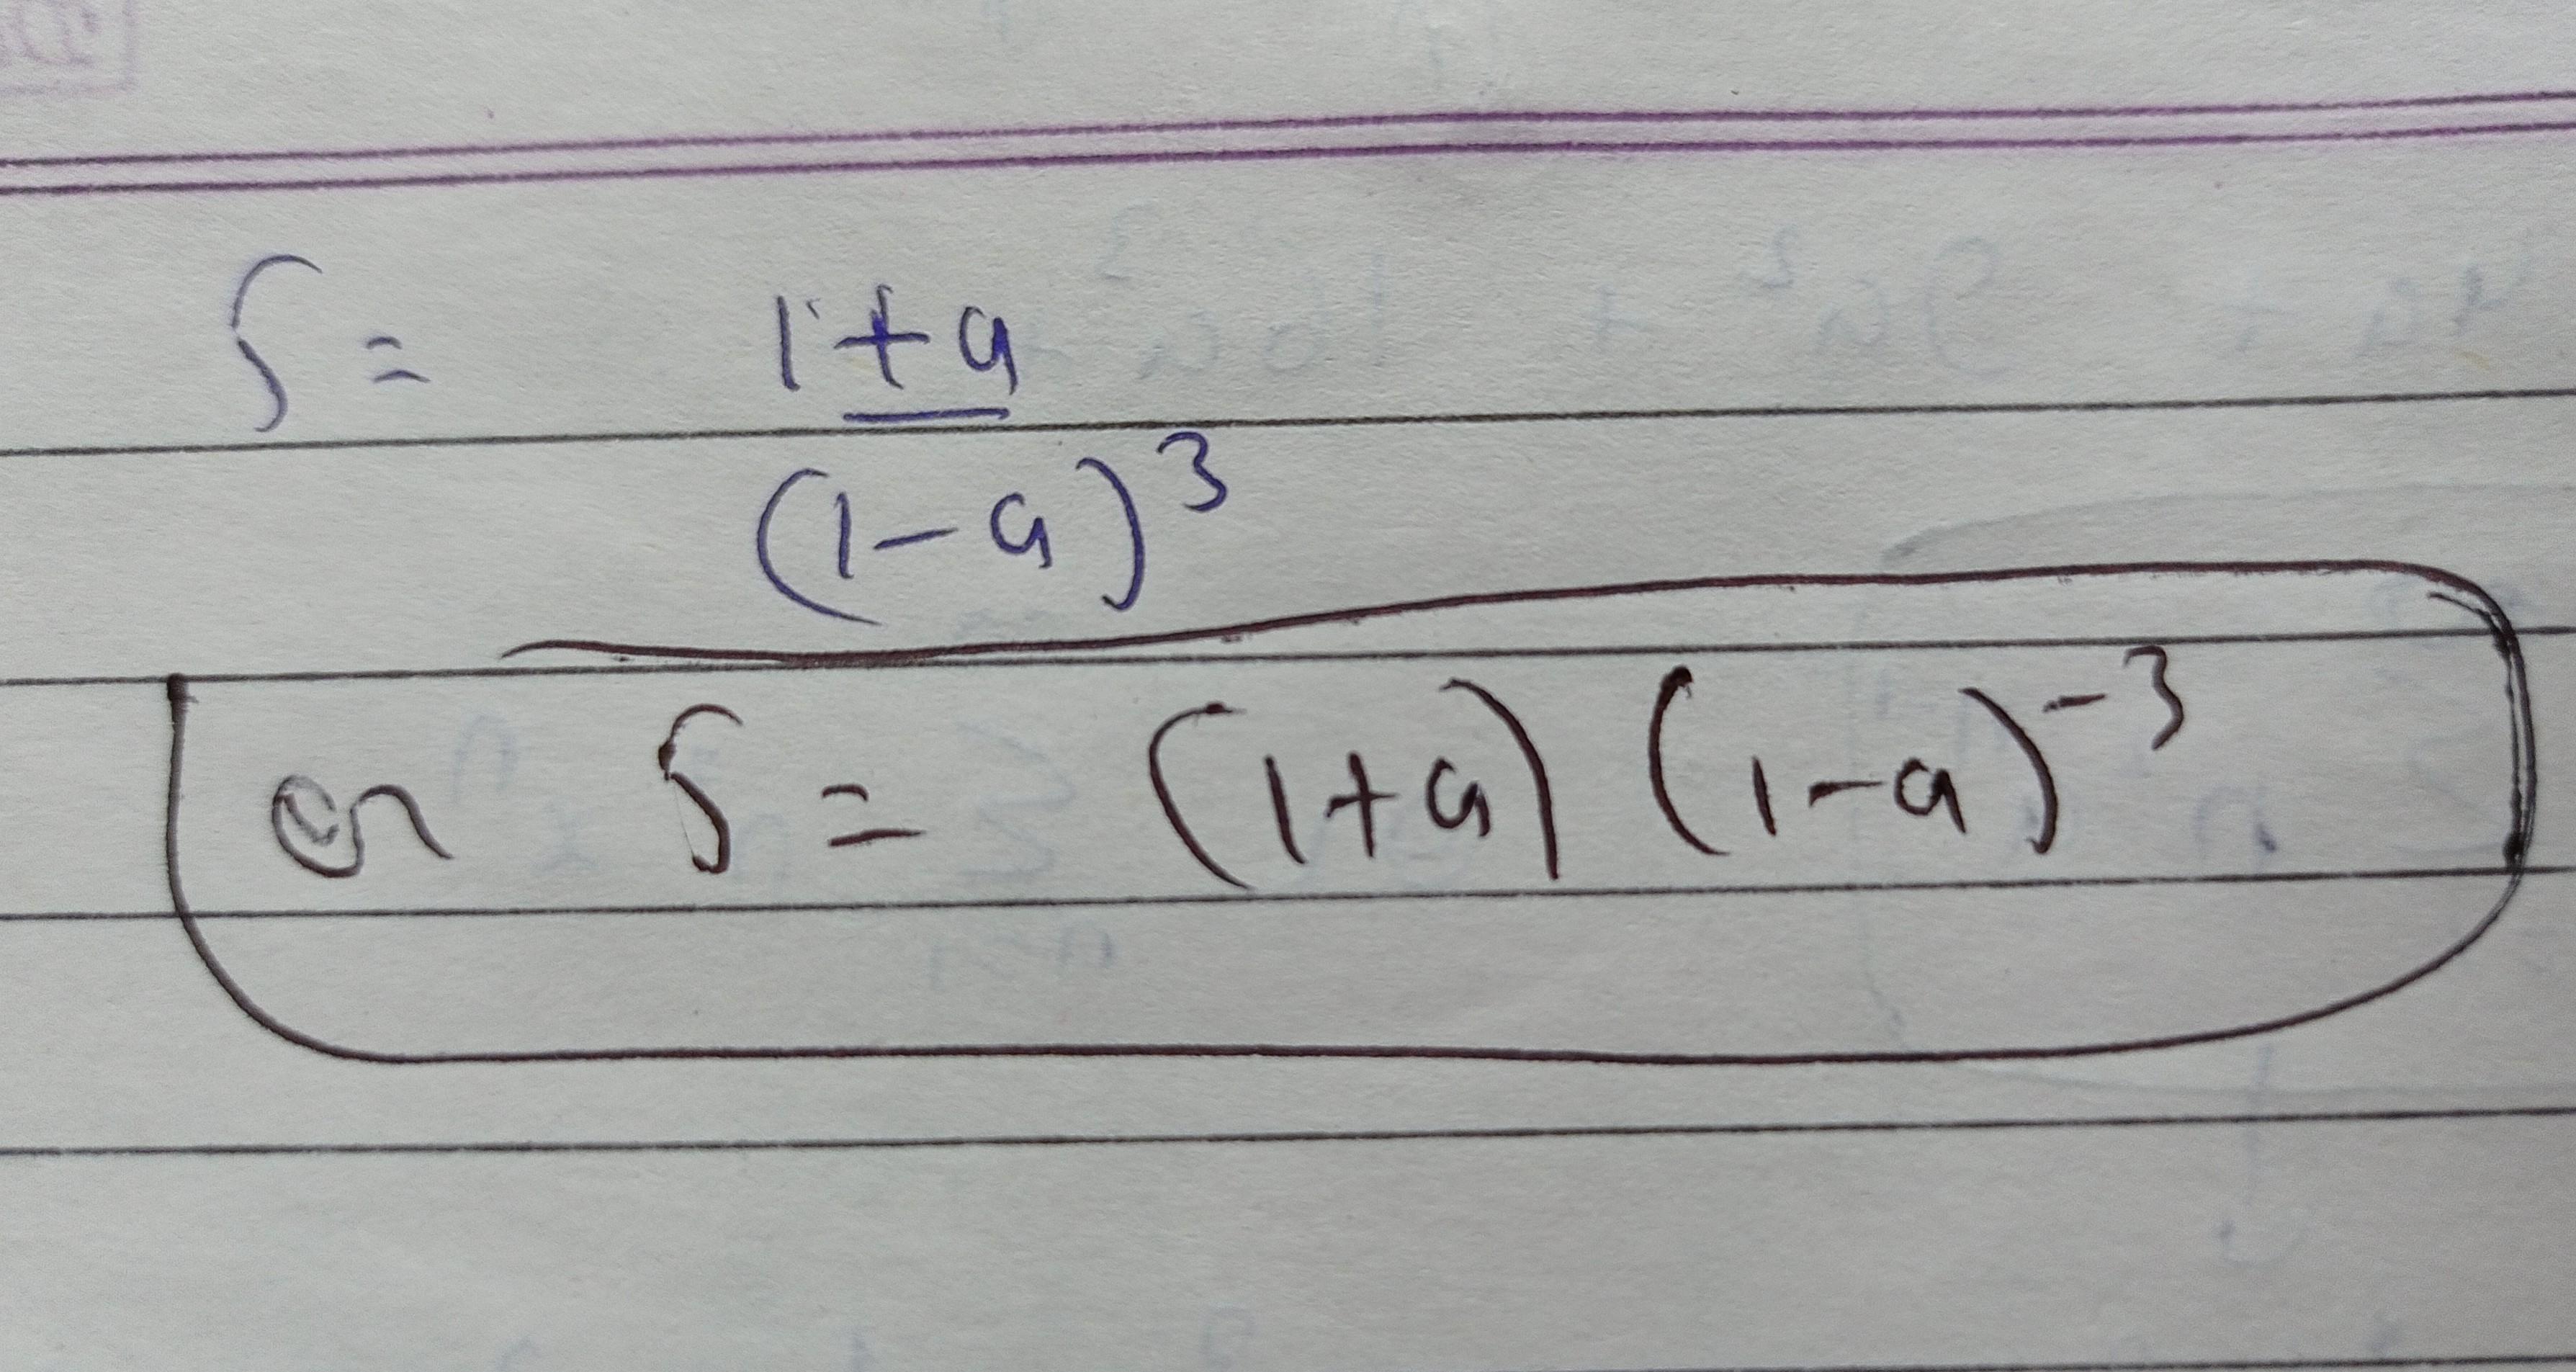 S = 1+a
(1-a)^3
or S = (1+a) (1-a)^-3